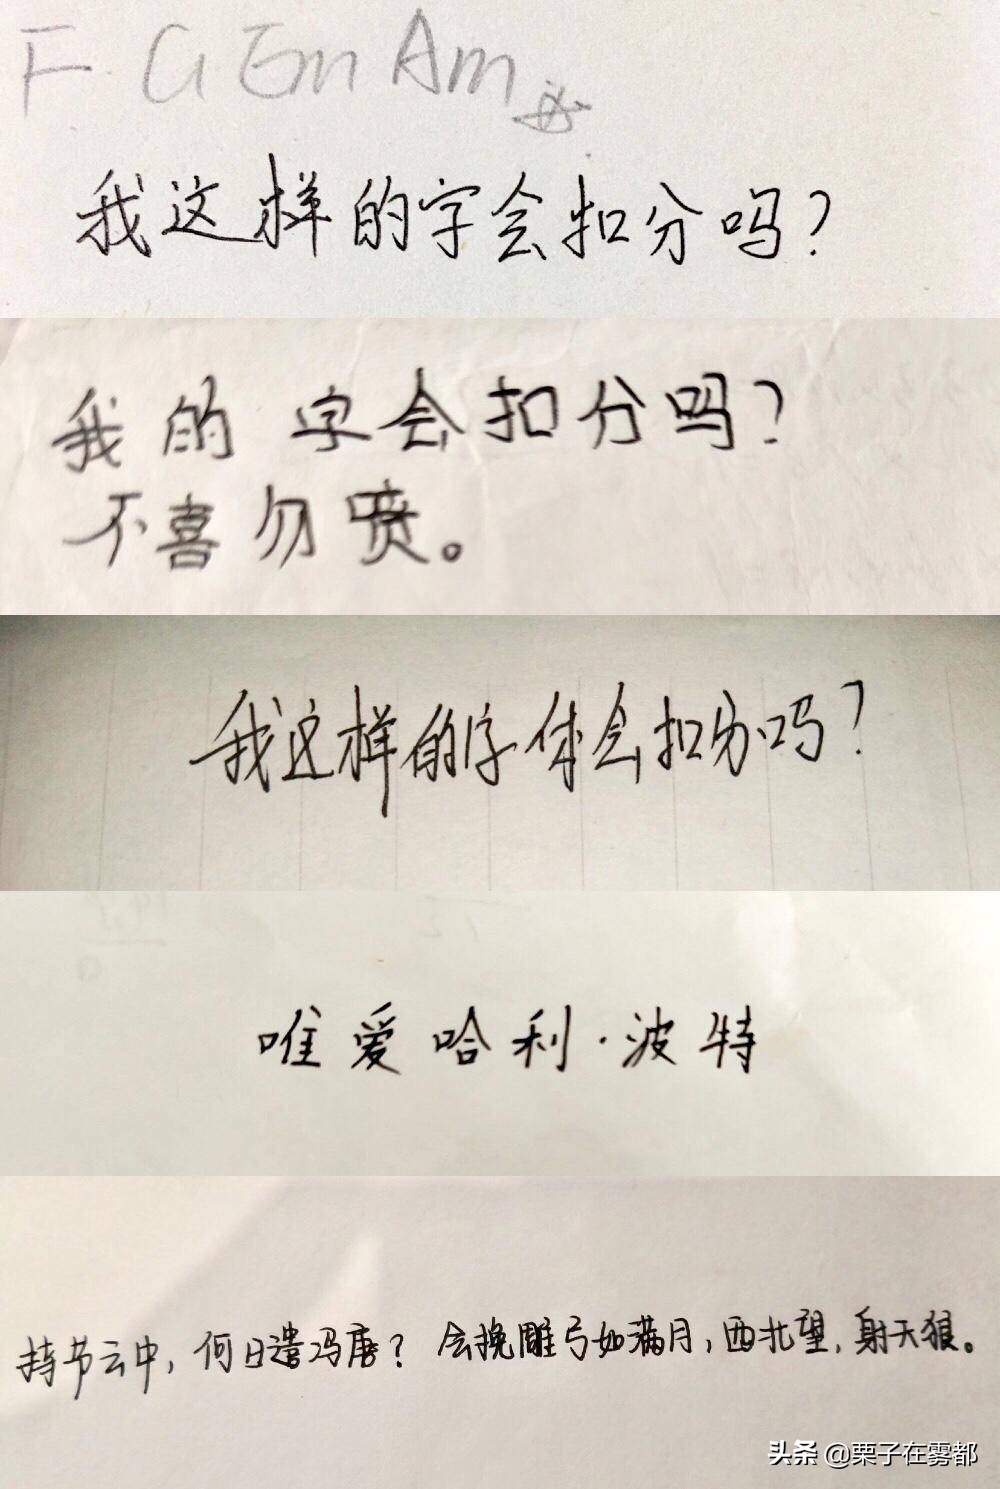 F G Em Am
我这样的字会扣分吗?
我的 字会扣分吗?
不喜勿喷。
我这样的字体会扣分吗?
唯爱哈利·波特
持节云中,何日遣冯唐?会挽雕弓如满月,西北望,射天狼。
头条 @栗子在雾都